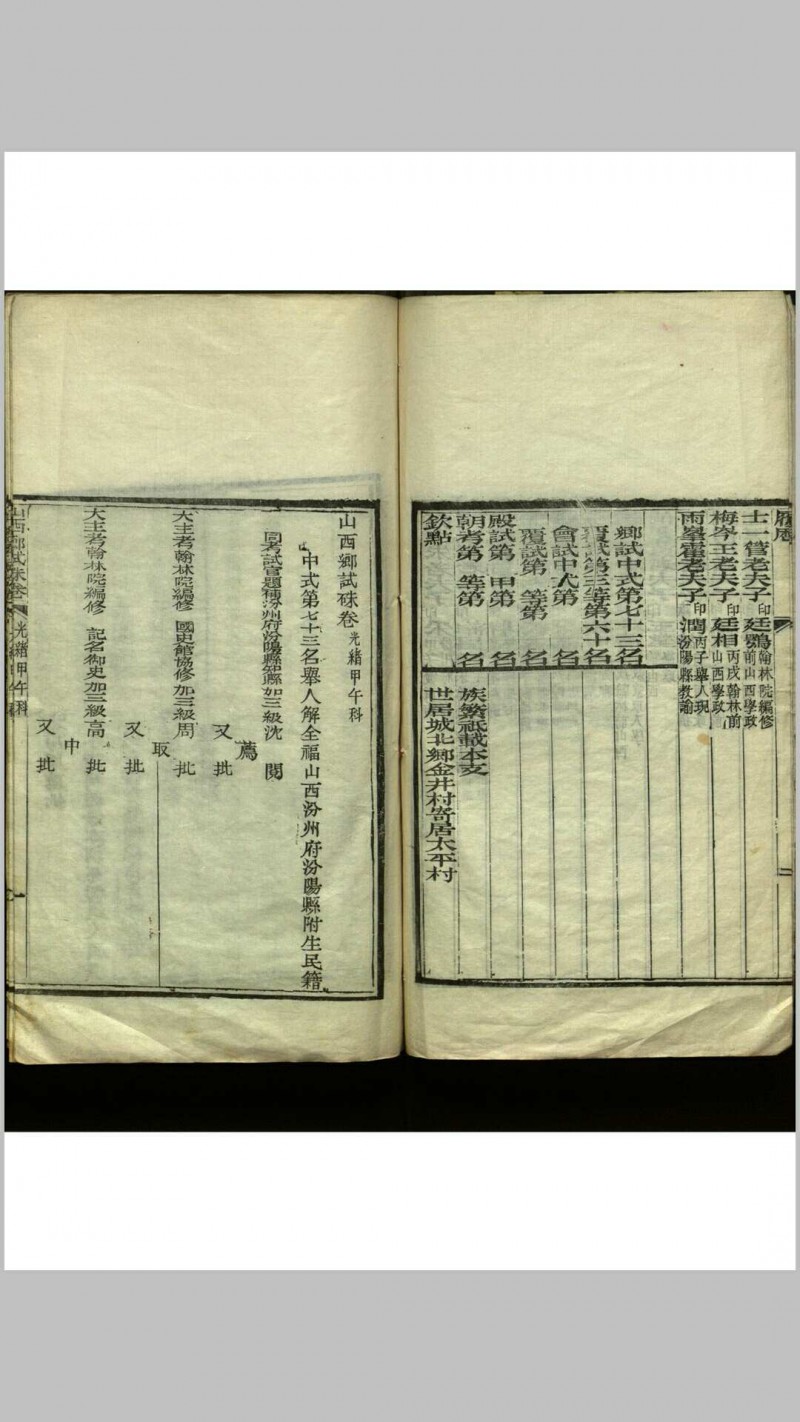 履歷
士一管老夫子印廷鶚翰林院編修前山西學政
梅岑王老夫子印廷相丙戌翰林前山西學政
雨峯霍老夫子印潤丙子舉人現汾陽縣教諭
鄉試中式第七十三名
覆試第三等第六十名
會試中式第 名
覆試第 等第 名
殿試第 甲第 名
朝考第 等第 名
欽點
族繁祗載本支
世居城北鄉金井村寄居太平村
山西鄉試硃卷光緒甲午科
中式第七十三名舉人解全福山西汾州府汾陽縣附生民籍
同考試官題補汾州府汾陽縣知縣加三級沈 閱
薦
又批
大主考翰林院編修 國史館協修加三級周 批
取
又批
大主考翰林院編修 記名御史加三級高 批
中
又批
山西鄉試硃卷 光緒甲午科